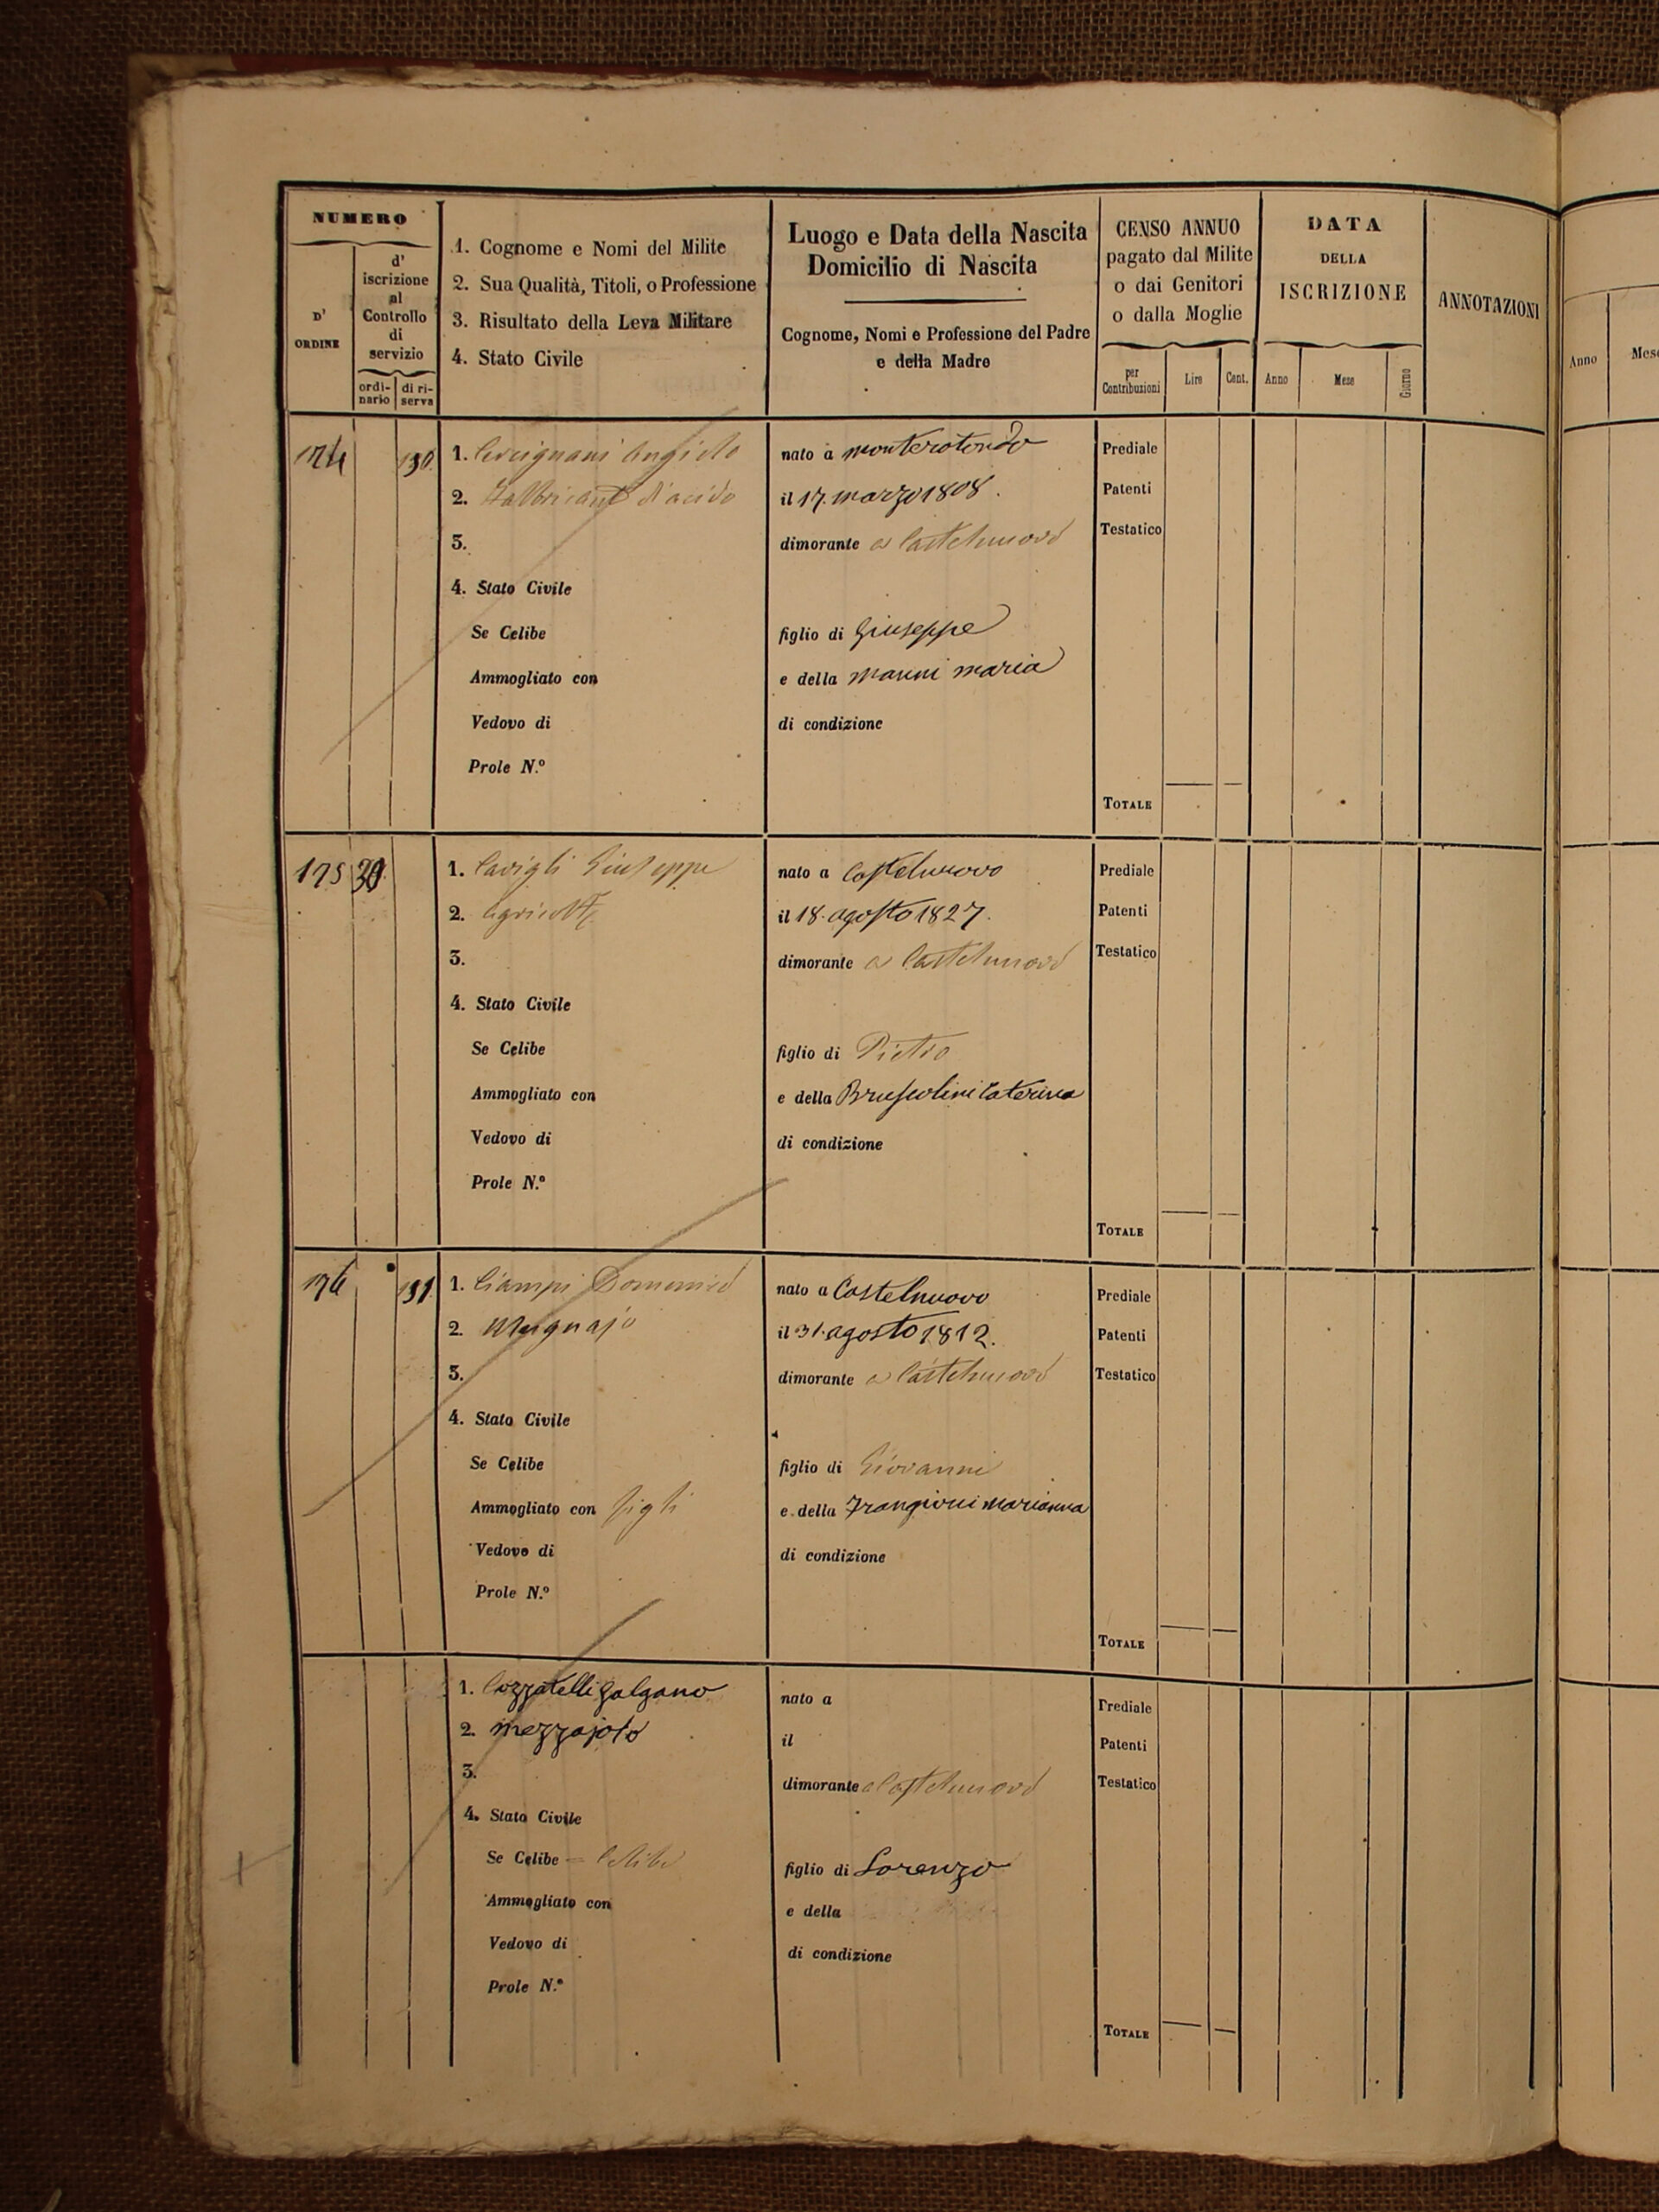 NUMERO
D' ORDINE
d' iscrizione al Controllo di servizio
ordinario
di riserva
1. Cognome e Nomi del Milite
2. Sua Qualità, Titoli, o Professione
3. Risultato della Leva Militare
4. Stato Civile
Luogo e Data della Nascita
Domicilio di Nascita
Cognome, Nomi e Professione del Padre
e della Madre
CENSO ANNUO
pagato dal Milite
o dai Genitori
o dalla Moglie
per Contribuzioni
Lire
Cent.
DATA
DELLA
ISCRIZIONE
Anno
Mese
Giorno
ANNOTAZIONI
Anno
174
130.
1. Cercignani Angiolo
2. Fabbricante d'acido
3.
4. Stato Civile
Se Celibe
Ammogliato con
Vedovo di
Prole N.º
nato a Monterotondo
il 17. marzo 1808.
dimorante a Castelnuovo
figlio di Giuseppe
e della Manni Maria
di condizione
Prediale
Patenti
Testatico
TOTALE
175
30.
1. Cavigli Giuseppe
2.
3.
4. Stato Civile
Se Celibe
Ammogliato con
Vedovo di
Prole N.º
nato a Castelnuovo
il 18. agosto 1827.
dimorante a Castelnuovo
figlio di Pietro
e della Bruscolini Caterina
di condizione
Prediale
Patenti
Testatico
TOTALE
176
131.
1. Ciampi Domenico
2. Mugnajo
3.
4. Stato Civile
Se Celibe
Ammogliato con figli
Vedovo di
Prole N.º
nato a Castelnuovo
il 31. agosto 1812.
dimorante a Castelnuovo
figlio di Giovanni
e della Frangioni Marianna
di condizione
Prediale
Patenti
Testatico
TOTALE
1. Cozzatelli Galgano
2. mezzajolo
3.
4. Stato Civile
Se Celibe = Celibe
Ammogliato con
Vedovo di
Prole N.º
nato a
il
dimorante a Castelnuovo
figlio di Lorenzo
e della
di condizione
Prediale
Patenti
Testatico
TOTALE